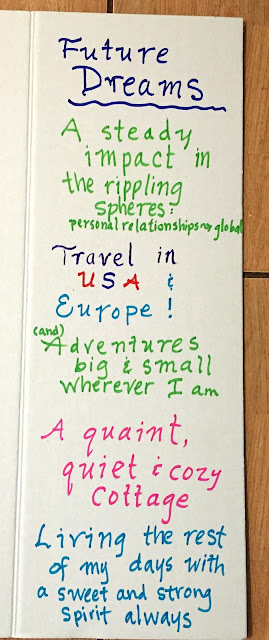 Future
Dreams
A steady
impact in
the rippling
spheres:
personal relationships global
Travel in
USA &
Europe!
(and)
Adventures
big & small
wherever I am
A quaint,
quiet & cozy
cottage
Living the rest
of my days with
a sweet and strong
spirit always